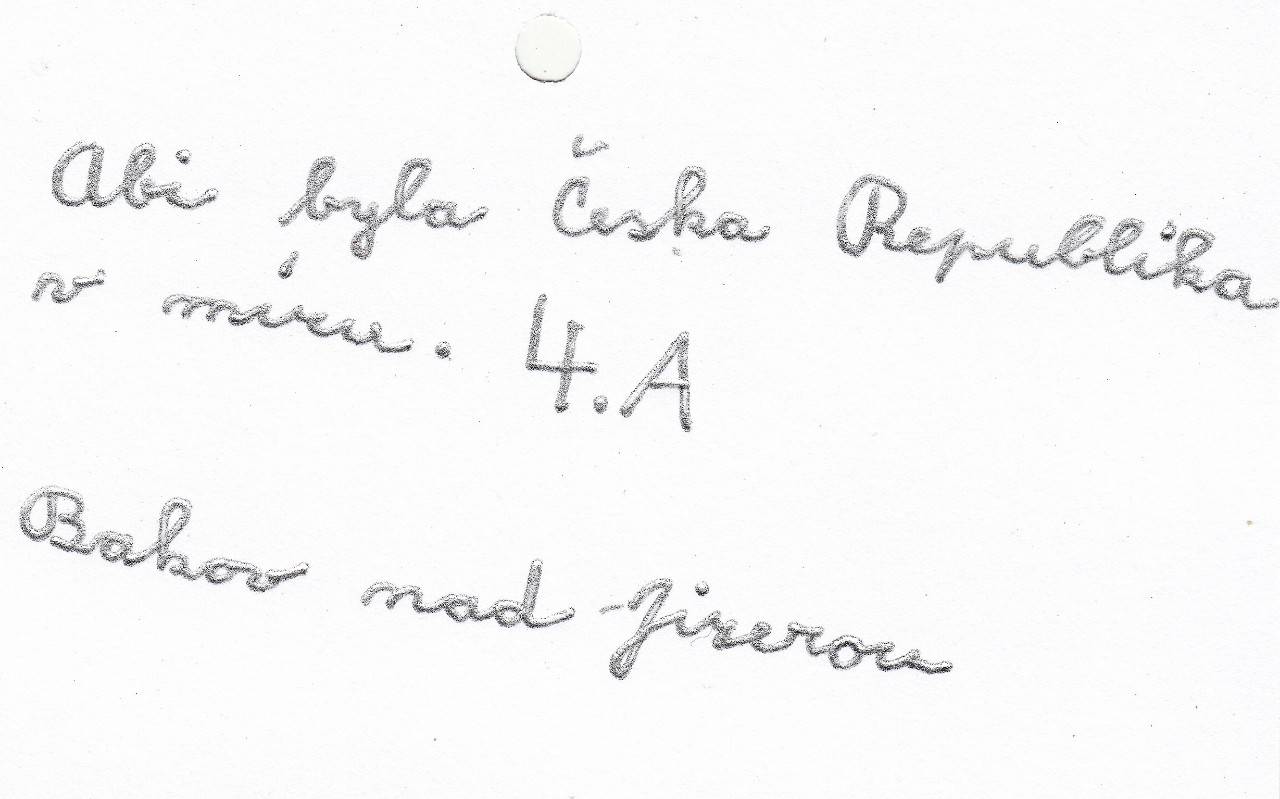 Abi byla Česka Republika
v míru. 4.A
Bakov nad Jizerou